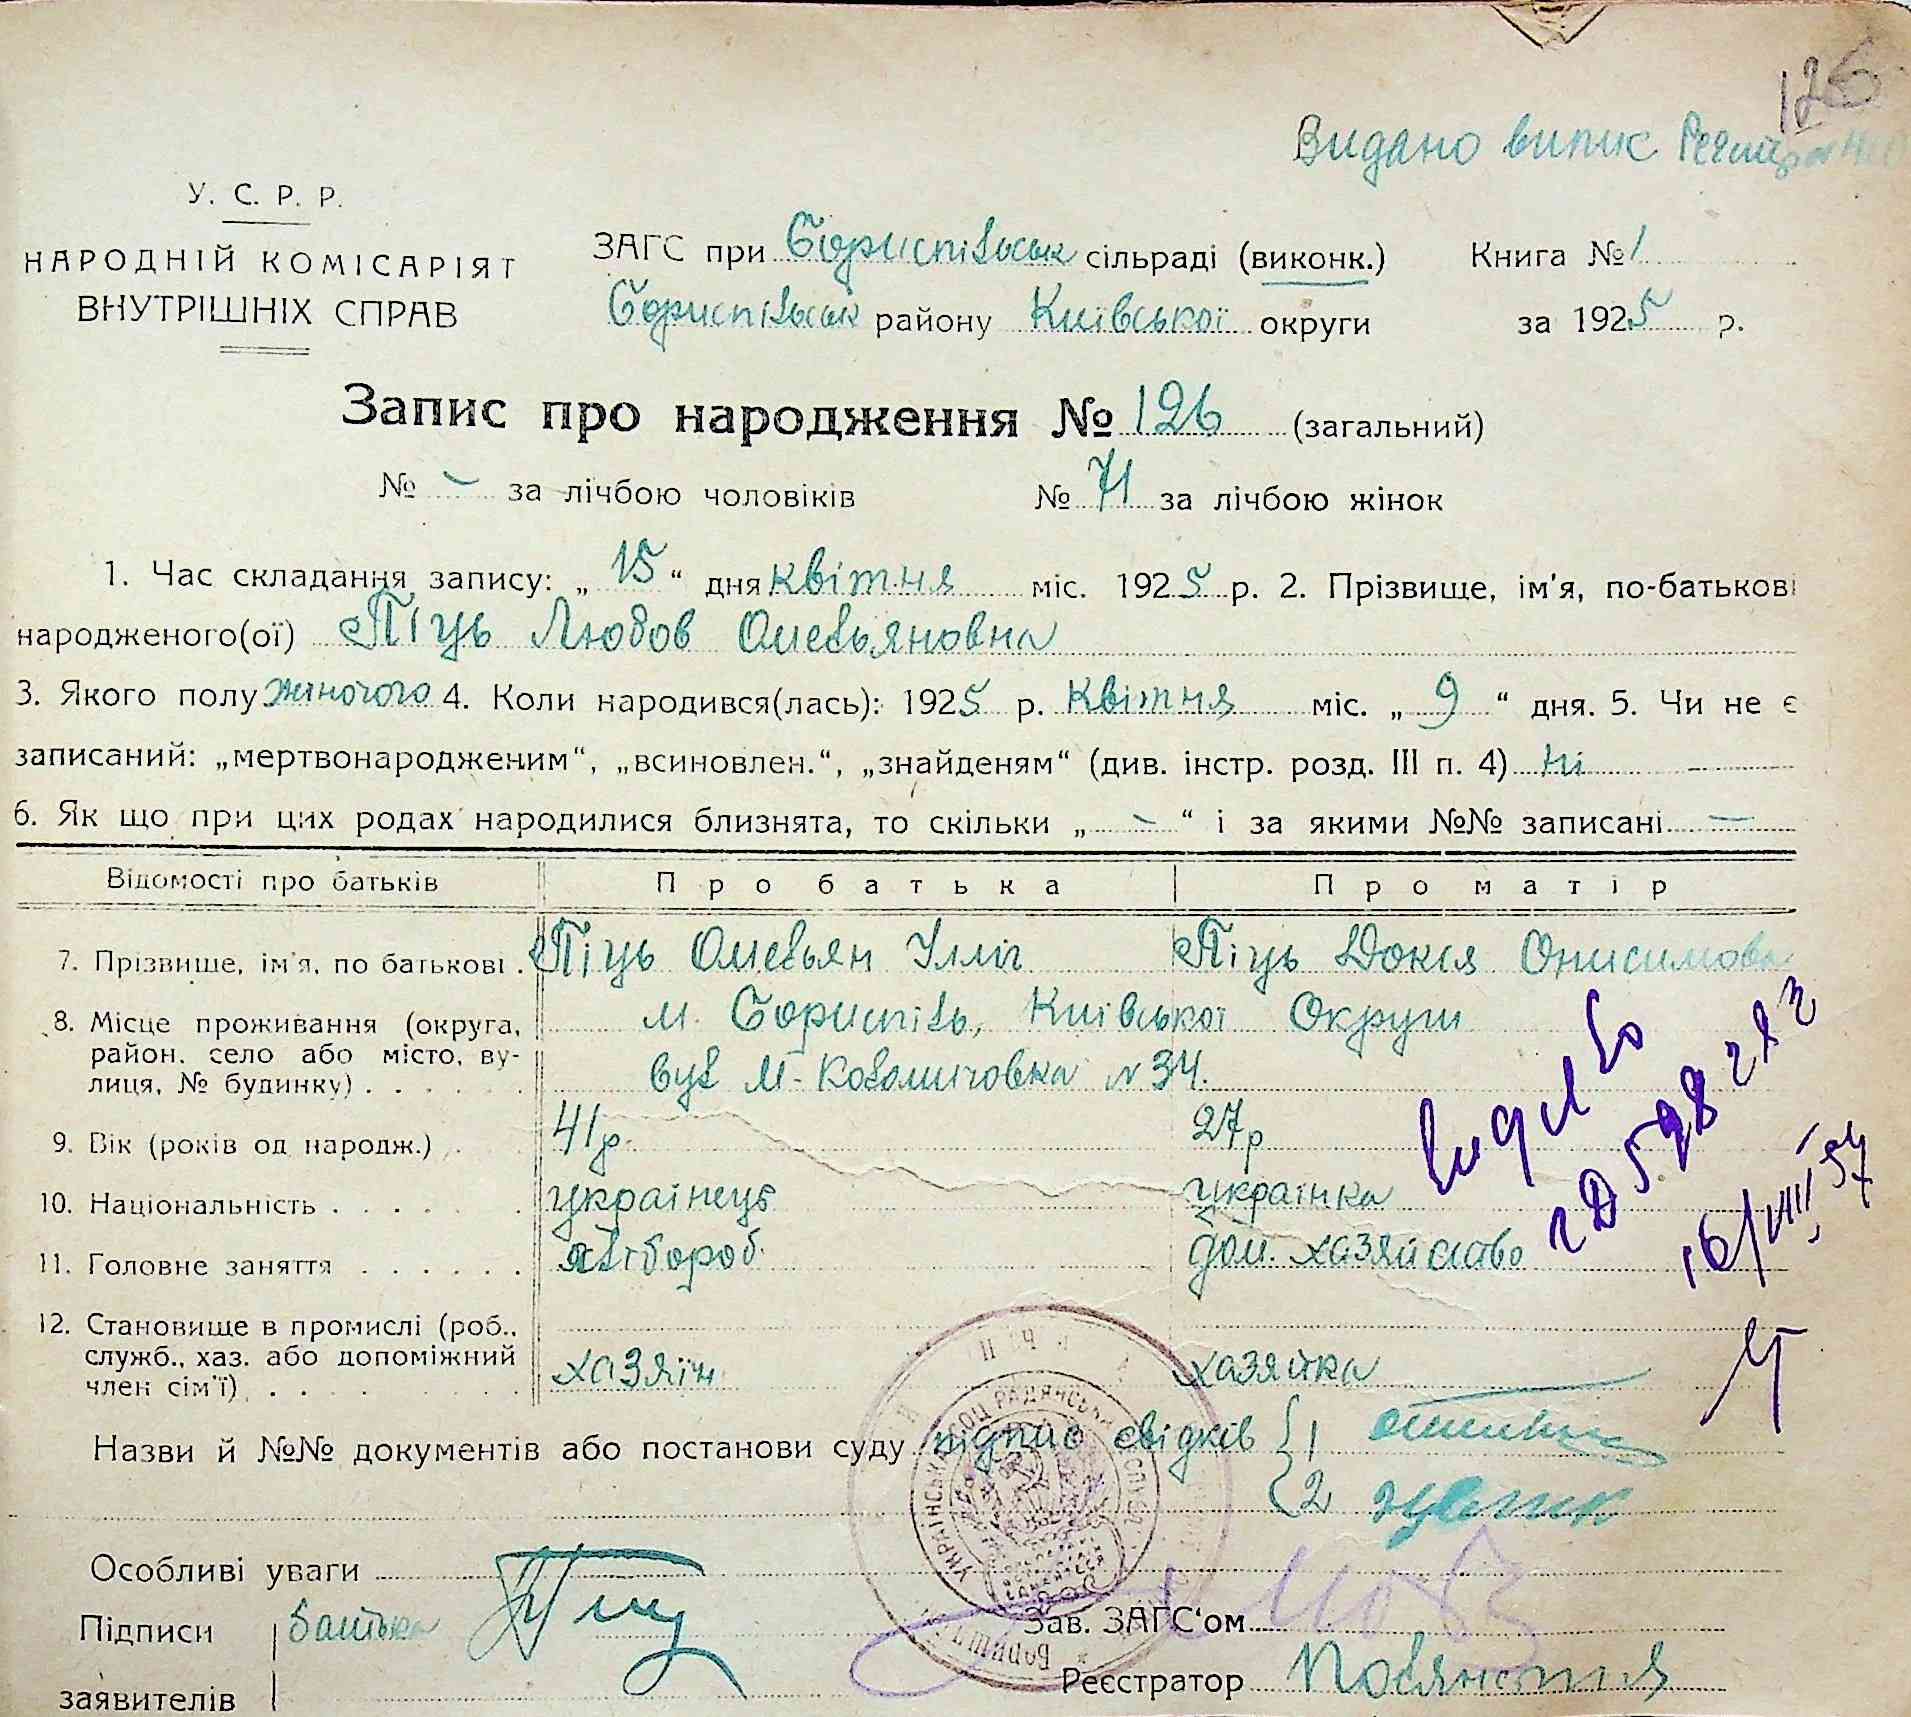 126
Видано випис
У. С. Р. Р.
НАРОДНІЙ КОМІСАРІЯТ
ВНУТРІШНІХ СПРАВ
ЗАГС при Бориспільськ сільраді (виконк.)
Книга № 1
Бориспільськ району Київської округи
за 1925 р.
Запис про народження № 126 (загальний)
№ - за лічбою чоловіків № 71 за лічбою жінок
1. Час складання запису: „ 15 “ дня квітня міс. 1925 р. 2. Прізвище, ім'я, по-батькові
народженого(ої) Піць Любов Омельяновна
3. Якого полу жіночого 4. Коли народився(лась): 1925 р. Квітня міс. „ 9 “ дня. 5. Чи не є
записаний: „мертвонародженим“, „всиновлен.“, „знайденям“ (див. інстр. розд. III п. 4) ні
6. Як що при цих родах народилися близнята, то скільки „ - “ і за якими №№ записані -
Відомості про батьків Про батька Про матір
7. Прізвище, ім'я, по батькові . Піць Омельян Ілліч Піць Докія Онисимовн
8. Місце проживання (округа, район, село або місто, вулиця, № будинку) . . . . . м. Бориспіль, Київської Округи
вул М- Коломичовка № 34.
9. Вік (років од народж.) . . 41р. 27р
10. Національність . . . . . . українець українка
11. Головне заняття . . . . . . хлібороб. дом. хазяйство
12. Становище в промислі (роб., служб., хаз. або допоміжний член сім'ї) . . . . . . хазяїн хазяйка
видано
16/VIII, 57
Назви й №№ документів або постанови суду підпис свідків 1
2
УКРАЇНСЬКА СОЦ РАДЯНСЬКА
Особливі уваги
Підписи батька
заявителів
Зав. ЗАГС‘ом
Реєстратор